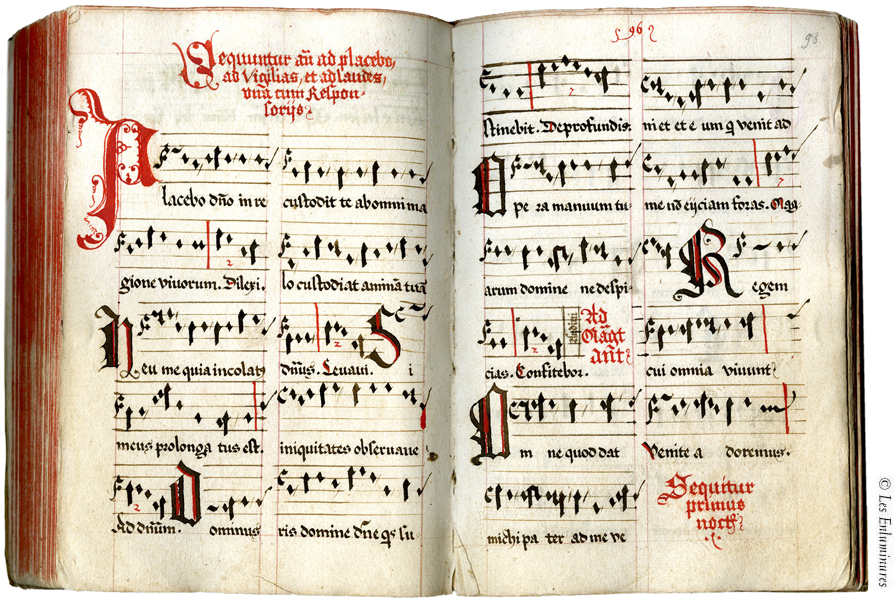 Sequuntur añ ad placebo,
ab Vigilias, et ad laudes,
vnã cum Respon-
sorijs
Placebo dño in re
gione viuorum. Dilexi.
Heu me quia incolatꝰ
meus prolonga tus est.
Ad dnũm. Dominus
custodit te ab omni ma
lo custodiat animã tuã
dñus. Leuaui. Si
iniquitates obseruaue
ris domine dñe qͥs su
96
98
stinebit. De profundis.
Ope ra manuum tu
arum domine ne despi
cias. Confitebor.
Ad
Magt
ant
Om ne quod dat
michi pa ter ad me ve
ni et et e um q venit ad
me nõ eijciam foras. Mag-
Regem
cui omnia viuunt
Venite a doremus.
Sequitur
primus
noct
© Les Enluminures